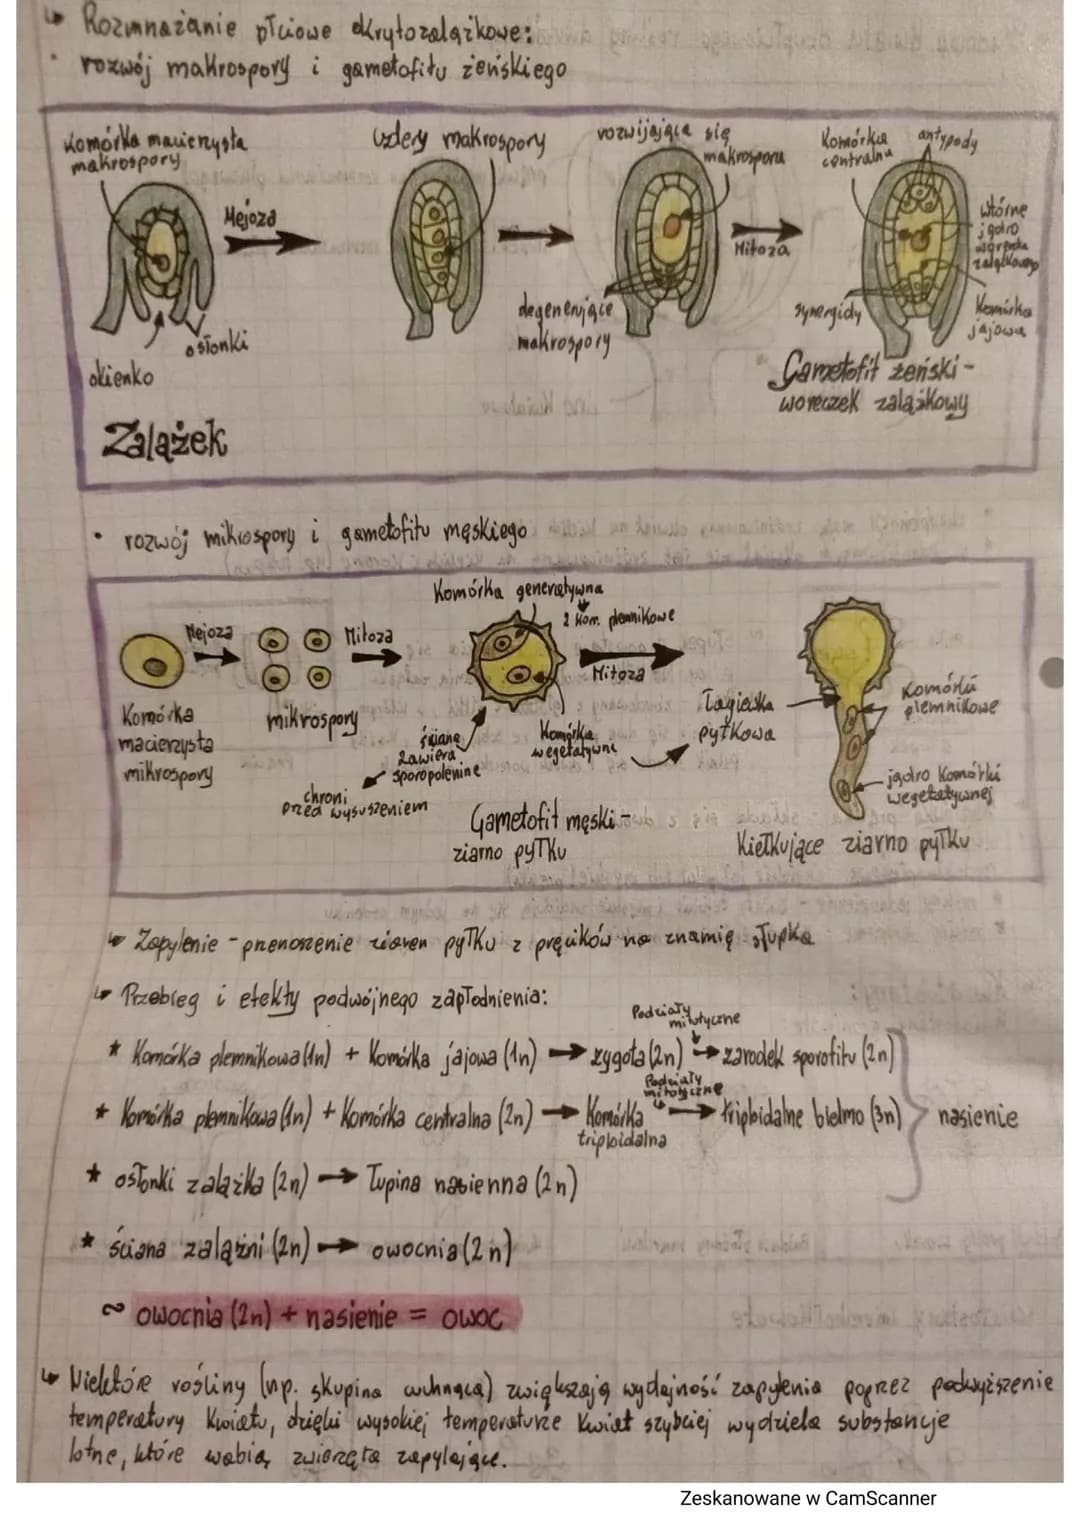 ↳ Rozmnażanie płciowe okrytozalążkowe:
• rozwój makrospory i gametofitu żeńskiego
Komórka macierzysta
makrospory
Mejoza
cztery makrospory
rozwijająca się
makrospora
Mitoza
Komórka
centralna
antypody
wtórne
jądro
woreczka
zalążkowego
Komórka
jajowa
synergidy
degenerujące
makrospory
osłonki
okienko
Gametofit żeński -
woreczek zalążkowy
Zalążek
• rozwój mikrospory i gametofitu męskiego
Komórka generatywna
2 kom. plemnikowe
Mejoza
Mitoza
Mitoza
Komórka
macierzysta
mikrospory
mikrospory
ściana
zawiera
sporopoleninę
chroni
przed wysuszeniem
Komórka
wegetatywna
Łagiewka
pyłkowa
Komórki
plemnikowe
jądro Komórki
wegetatywnej
Gametofit męski -
ziarno pyłku
Kiełkujące ziarno pyłku
↳ Zapylenie - przenoszenie ziaren pyłku z pręcików na znamię słupka
↳ Przebieg i efekty podwójnego zapłodnienia:
Podziały
mitotyczne
* Komórka plemnikowa (1n) + Komórka jajowa (1n) → zygota (2n) → zarodek sporofitu (2n)
Podziały
mitotyczne
* Komórka plemnikowa (1n) + Komórka centralna (2n) → Komórka
triploidalna
→ triploidalne bielmo (3n)
nasienie
* osłonki zalążka (2n) → Łupina nasienna (2n)
* ściana zalążni (2n) → owocnia (2n)
∾ owocnia (2n) + nasienie = owoc
↳ Niektóre rośliny (np. skupina cuchnąca) zwiększają wydajność zapylenia poprzez podwyższenie
temperatury Kwiatu, dzięki wysokiej temperaturze Kwiat szybciej wydziela substancje
lotne, które wabią zwierzęta zapylające.
Zeskanowane w CamScanner